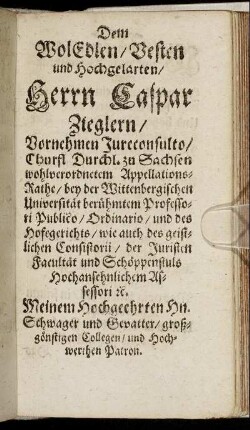 Dem
WolEdlen/Vesten
und Hochgelarten/
Herrn Caspar
Zieglern/
Vornehmen Jureconsulto/
Churfl Durchl. zu Sachsen
wohlverordnetem Appellations-
Rathe/bey der Wittenbergischen
Universität berühmtem Professo-
ri Publico/Ordinario, und des
Hofegerichts/wie auch des geist-
lichen Consistorii/der Juristen
Facultät und Schöppenstuls
Hochansehnlichem As-
sessori ꝛc.
Meinem Hochgeehrten Hn.
Schwager und Gevatter/groß-
günstigen Collegen/und Hoch-
werthen Patron.